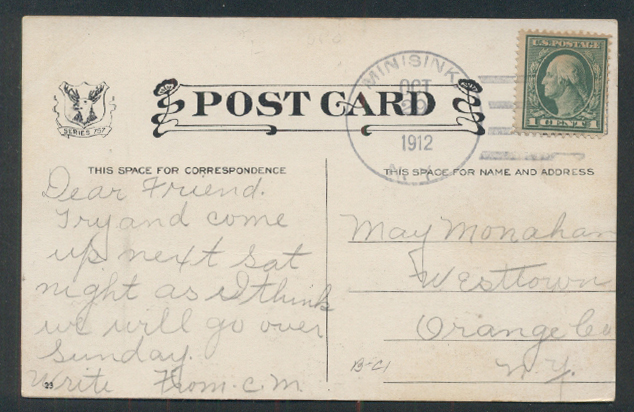 U.S. POSTAGE
1 CENT 1
MINISINK
OCT
1912
N.Y.
POST CARD
SERIES
THIS SPACE FOR CORRESPONDENCE
THIS SPACE FOR NAME AND ADDRESS
Dear Friend.
Try and come
up next Sat
night as I think
we will go over
Sunday.
Write From. C. M
33
May Monahan
Westtown
Orange Co
N.Y.
B-C1